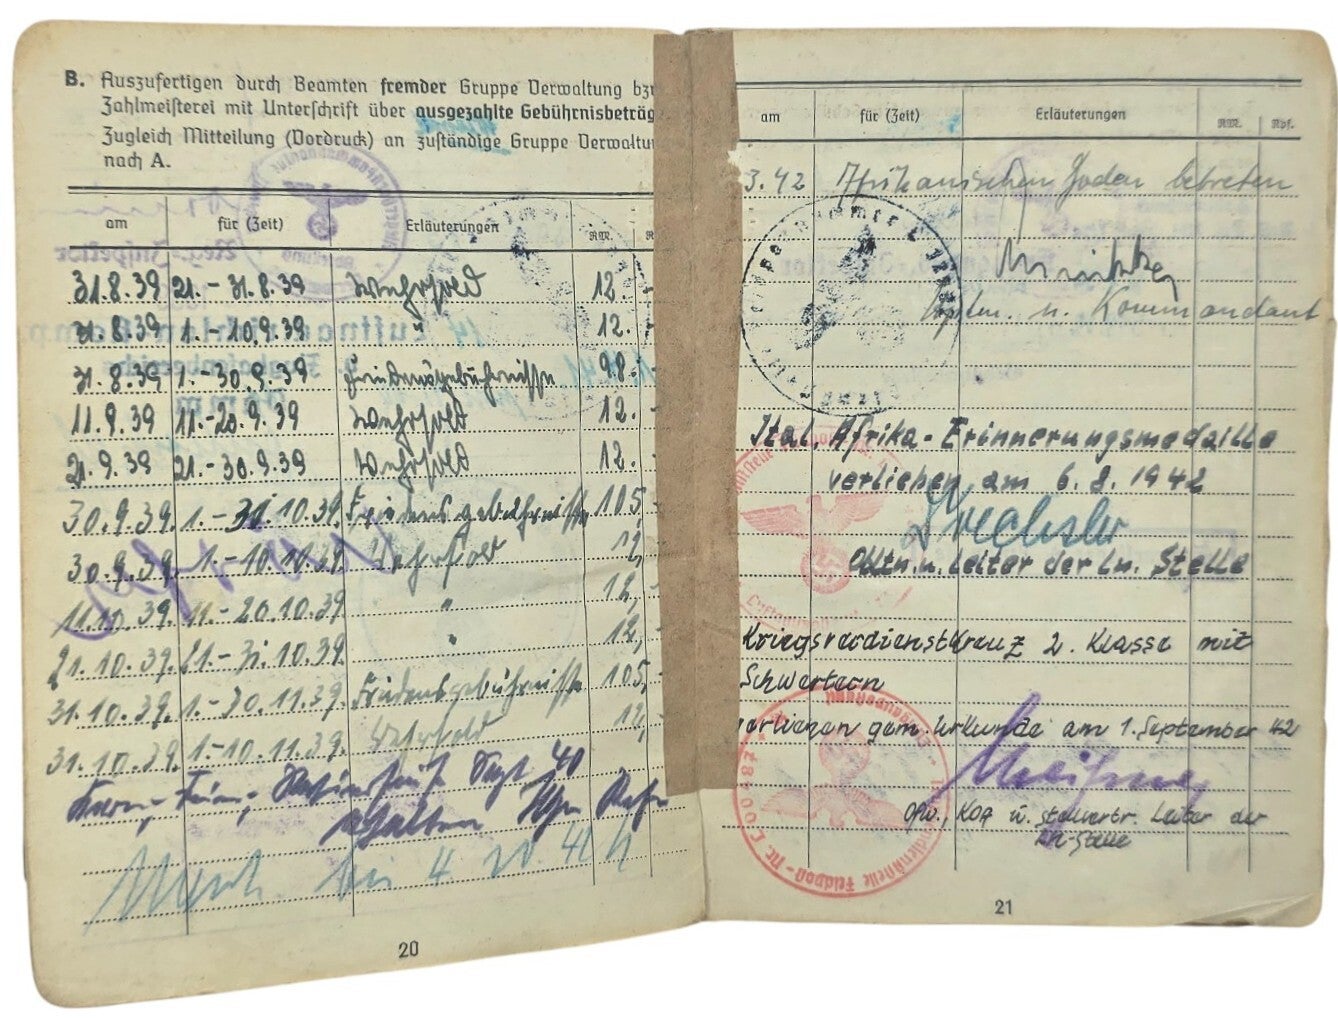 B. Auszufertigen durch Beamten fremder Gruppe Verwaltung bzw
Zahlmeisterei mit Unterschrift über ausgezahlte Gebührnisbeträg
Zugleich Mitteilung (Vordruck) an zuständige Gruppe Verwaltu
nach A.
am für (Zeit) Erläuterungen RM. R
31.8.39 21.-31.8.39 Wehrsold 12.-
31.8.39 1.-10.9.39 " 12.-
31.8.39 1.-30.9.39 Friedensgebührnisse 98.-
11.9.39 11.-20.9.39 Wehrsold 12.-
21.9.39 21.-30.9.39 Wehrsold 12.-
30.9.39. 1.-31.10.39. Friedensgebührnisse 105,
30.9.39. 1.-10.10.39. Wehrsold 12,
11.10.39. 11.-20.10.39. " 12,
21.10.39. 21.-31.10.39. " 12,
31.10.39. 1.-30.11.39. Friedensgebührnisse 105,
31.10.39. 1.-10.11.39. Wehrsold 12,
40
20
am für (Zeit) Erläuterungen RM. Rpf.
3.42 Afrikanischen Boden betreten
u. Kommandant.
Ital. Afrika-Erinnerungsmedaille
verliehen am 6.8.1942
Drechsler
Oltn. u. Leiter der Ln. Stelle
Kriegsverdienstkreuz 2. Klasse mit
Schwertern
verliehen gem. Urkunde am 1. September 42
Ofw., KOA u. stellvertr. Leiter der
LN-Stelle
21